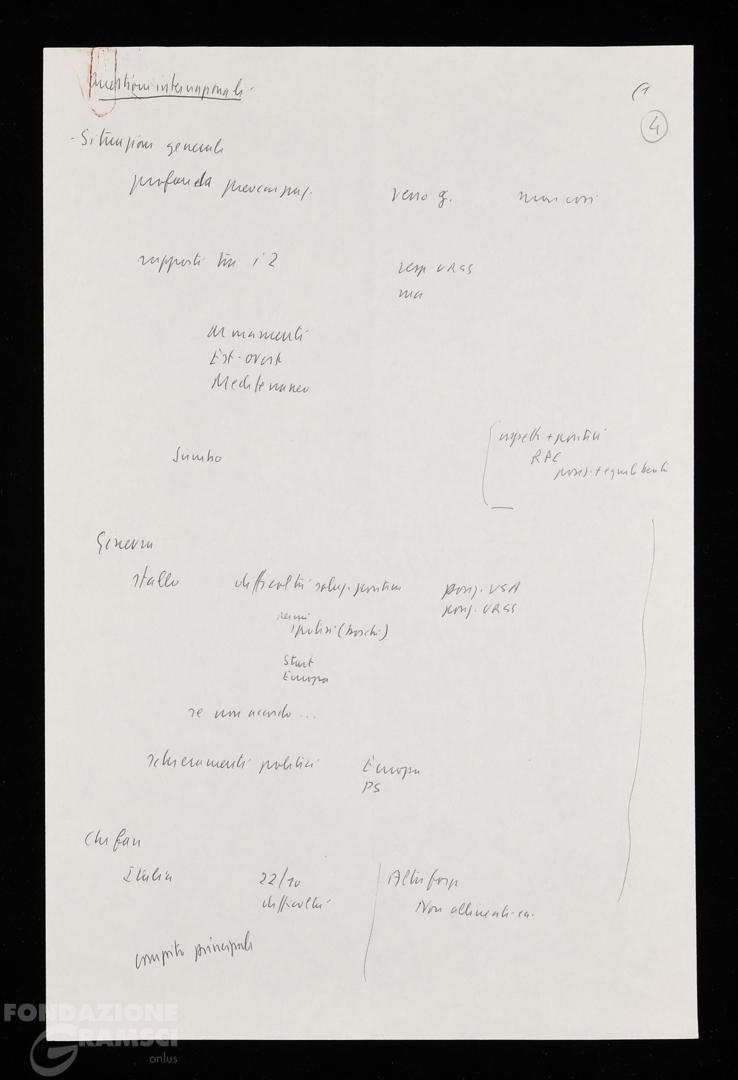 Questioni internazionali -
(1
4
- Situazione generale
profonda preoccupaz. verso g. non così
rapporti tra i 2 resp. URSS
ma
armamenti
Est-ovest
Mediterraneo
Summo
aspetti + positivi
RPC
posiz. + equilibrate
Ginevra
stallo difficoltà soluz. positiva posiz. USA
posiz. URSS
ipotesi (boschi)
Start
Europa
se non accordo ...
schieramenti politici Europa
PS
Che fare
Italia 22/10 Altre forze
difficoltà Non allineati - ca.
compito principale
FONDAZIONE
GRAMSCI
onlus